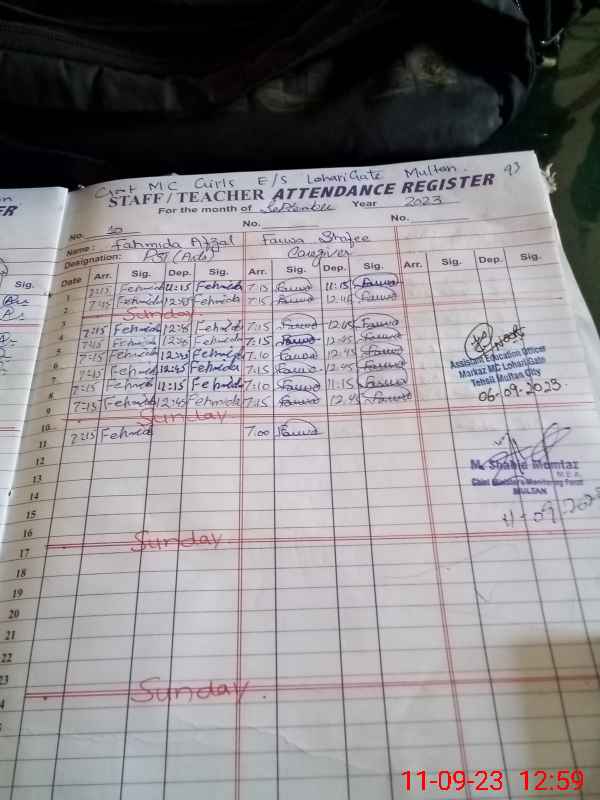 Govt MC Girls E/S LohariGate Multan. 93
STAFF/TEACHER ATTENDANCE REGISTER
For the month of September Year 2023
No. 30 No. No.
Name: Fahmida Afzal Fauwa Shafee
Designation: PST (Arts) Caregiver
Date Arr. Sig. Dep. Sig. Arr. Sig. Dep. Sig. Arr. Sig. Dep. Sig.
1 7:15 Fehmida 11:15 Fehmida 7:15 Fauwa 11:15 Fauwa
2 7:15 Fehmida 12:45 Fehmida 7:15 Fauwa 12:45 Fauwa
3 Sunday
4 7:15 Fehmida 12:45 Fehmida 7:15 Fauwa 12:45 Fauwa
5 7:15 Fehmida 12:45 Fehmida 7:15 Fauwa 12:45 Fauwa
6 7:15 Fehmida 12:45 Fehmida 7:10 Fauwa 12:45 Fauwa
7 7:15 Fehmida 12:45 Fehmida 7:15 Fauwa 12:45 Fauwa
8 7:15 Fehmida 11:15 Fehmida 7:10 Fauwa 11:15 Fauwa
9 7:15 Fehmida 12:45 Fehmida 7:15 Fauwa 12:45 Fauwa
Assistant Education Officer
Markaz MC LohariGate
Tehsil Multan City
06-09-2023.
10 Sunday
11 7:15 Fehmida 7:00 Fauwa
12
M. Shahid Momtaz
M.E.A.
13
Chief Minister's Monitoring Force
MULTAN
14
11-09-2023
15
16
17 Sunday
18
19
20
21
22
23
Sunday
11-09-23 12:59